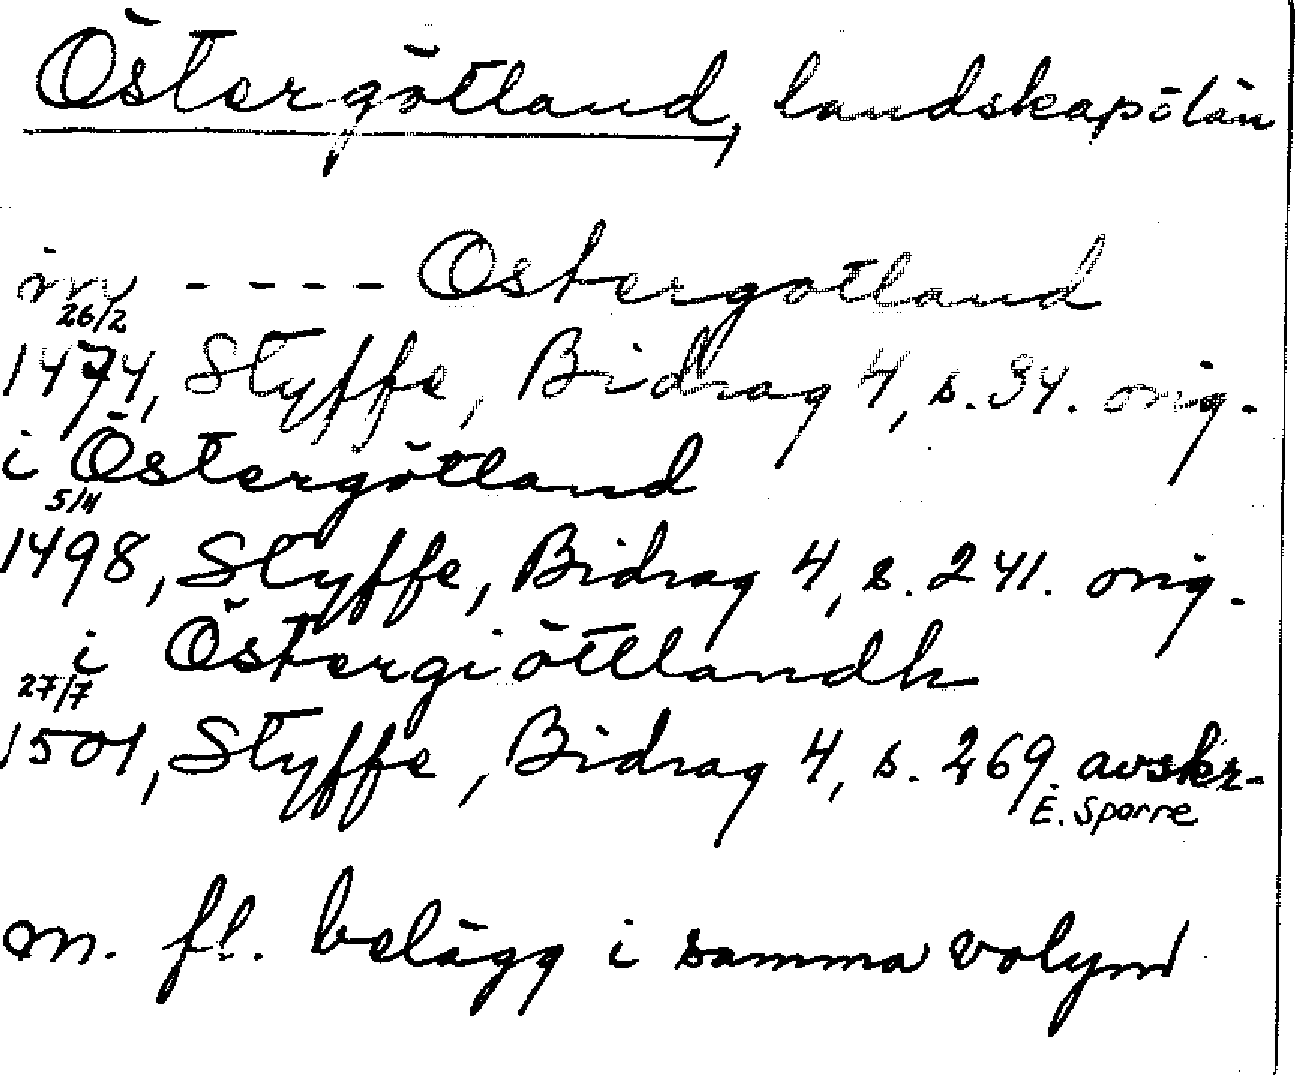 Östergötland, landskap o län
inn - - - - Ostergotland
26/2
1474, Styffe, Bidrag 4, s. 34. orig.
i Östergötland
5/4
1498, Styffe, Bidrag 4, s. 241. orig.
i Östergiöttlandh
27/7
1501, Styffe, Bidrag 4, s. 269. avskr.
E. Sparre
m. fl. belägg i samma volym